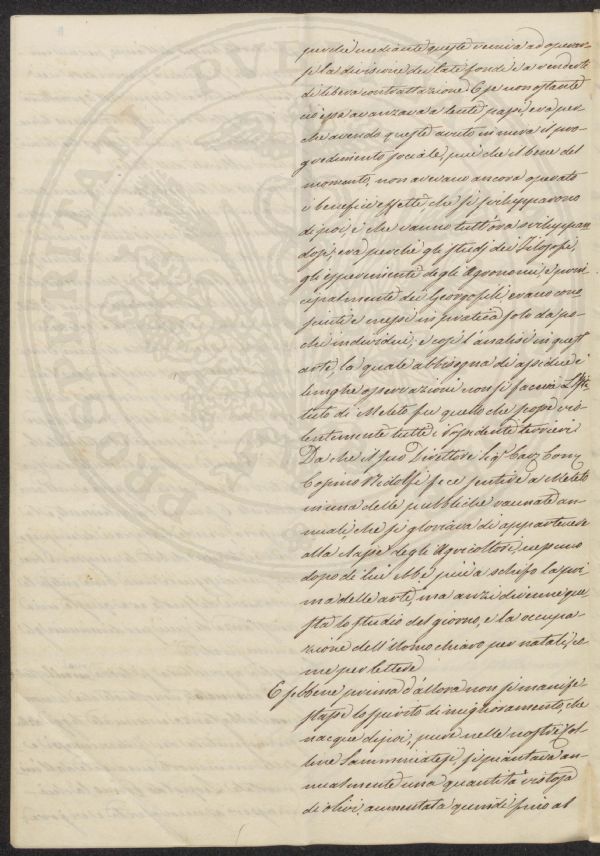 perchè mediante queste veniva ad operar-
si la divisione dei latifondi, e a renderli
di libera contrattazione. E se non ostante
ciò essa avanzava a lenti passi, era per
che avendo queste avuto in mira il pro-
gredimento sociale, più che il bene del
momento, non avevano ancora operato
i benefici effetti, che si svilupparono
di poi, e che vanno tutt'ora sviluppan
dosi; era perchè gli studj dei Filosofi,
gli esperimenti degli Agronomi, e prin
cipalmente dei Georgofili erano cono
sciuti e messi in pratica solo da po-
chi individui; e così l'analisi in quest'
arte, la quale abbisogna di assidue e
lunghe osservazioni non si faceva. L'Isti
tuto di Meleto fu quello che scosse vio
lentemente tutti i Possidenti terrieri.
Da che il suo Direttore Sigr Cav. Comr
Cosimo Ridolfi fece sentire a Meleto
in una delle pubbliche raunate an-
nuali, che si gloriava di appartenere
alla classe degli Agricoltori, nessuno
dopo di lui ebbe più a schifo la pri
ma delle arti, ma anzi divenne que
sta lo studio del giorno, e la occupa-
zione dell'Uomo chiaro per natali, co
me per lettere
E sebbene prima d'allora non si manife
stasse lo spirito di miglioramento, che
nacque di poi, pure nelle nostre Col
line Samminiatesi, si piantava an-
nualmente una quantità vistosa
di olivi, aumentata quindi fino al
PROSPERITATI
PVBL